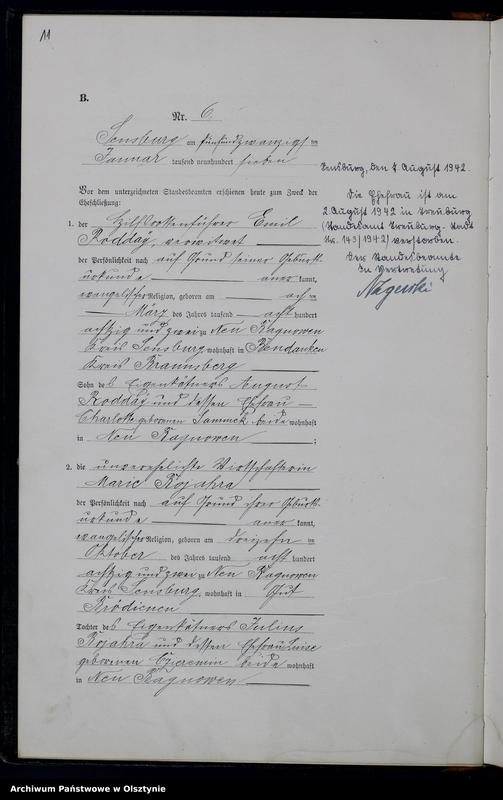 11
B.
Nr. 6.
Sensburg am fünfundzwanzigsten
Januar tausend neunhundert sieben
Vor dem unterzeichneten Standesbeamten erschienen heute zum Zweck der
Eheschließung:
1. der Hilfs Emil
Rodday, verwitwet
der Persönlichkeit nach auf Grund seiner Geburts-
urkunde anerkannt,
evangelischer Religion, geboren am achten
März des Jahres tausend acht hundert
achtzig und zwei zu Neu Kagnowen
Kreis Sensburg, wohnhaft in
Kreis Braunsberg
Sohn des Eigenkätners August
Rodday und dessen Ehefrau
Charlotte geborenen beide wohnhaft
in Neu Kagnowen ;
2. die unverehelichte Wirtschafterin
Marie Kojahra
der Persönlichkeit nach auf Grund ihrer Geburts-
urkunde anerkannt,
evangelischer Religion, geboren am dreizehnten
Oktober des Jahres tausend acht hundert
achtzig und zwei zu Neu Kagnowen
Kreis Sensburg, wohnhaft in Gut
Brödienen
Tochter des Eigenkätners Julius
Kojahra und dessen Ehefrau Luise
geborenen beide wohnhaft
in Neu Kagnowen
Sensburg, den 7. August 1942.
Die Ehefrau ist am
2. August 1942 in Treuburg
(Standesamt Treuburg-Stadt
Nr. 143/1942) verstorben.
Der Standesbeamte
In Vertretung
Archiwum Państwowe w Olsztynie